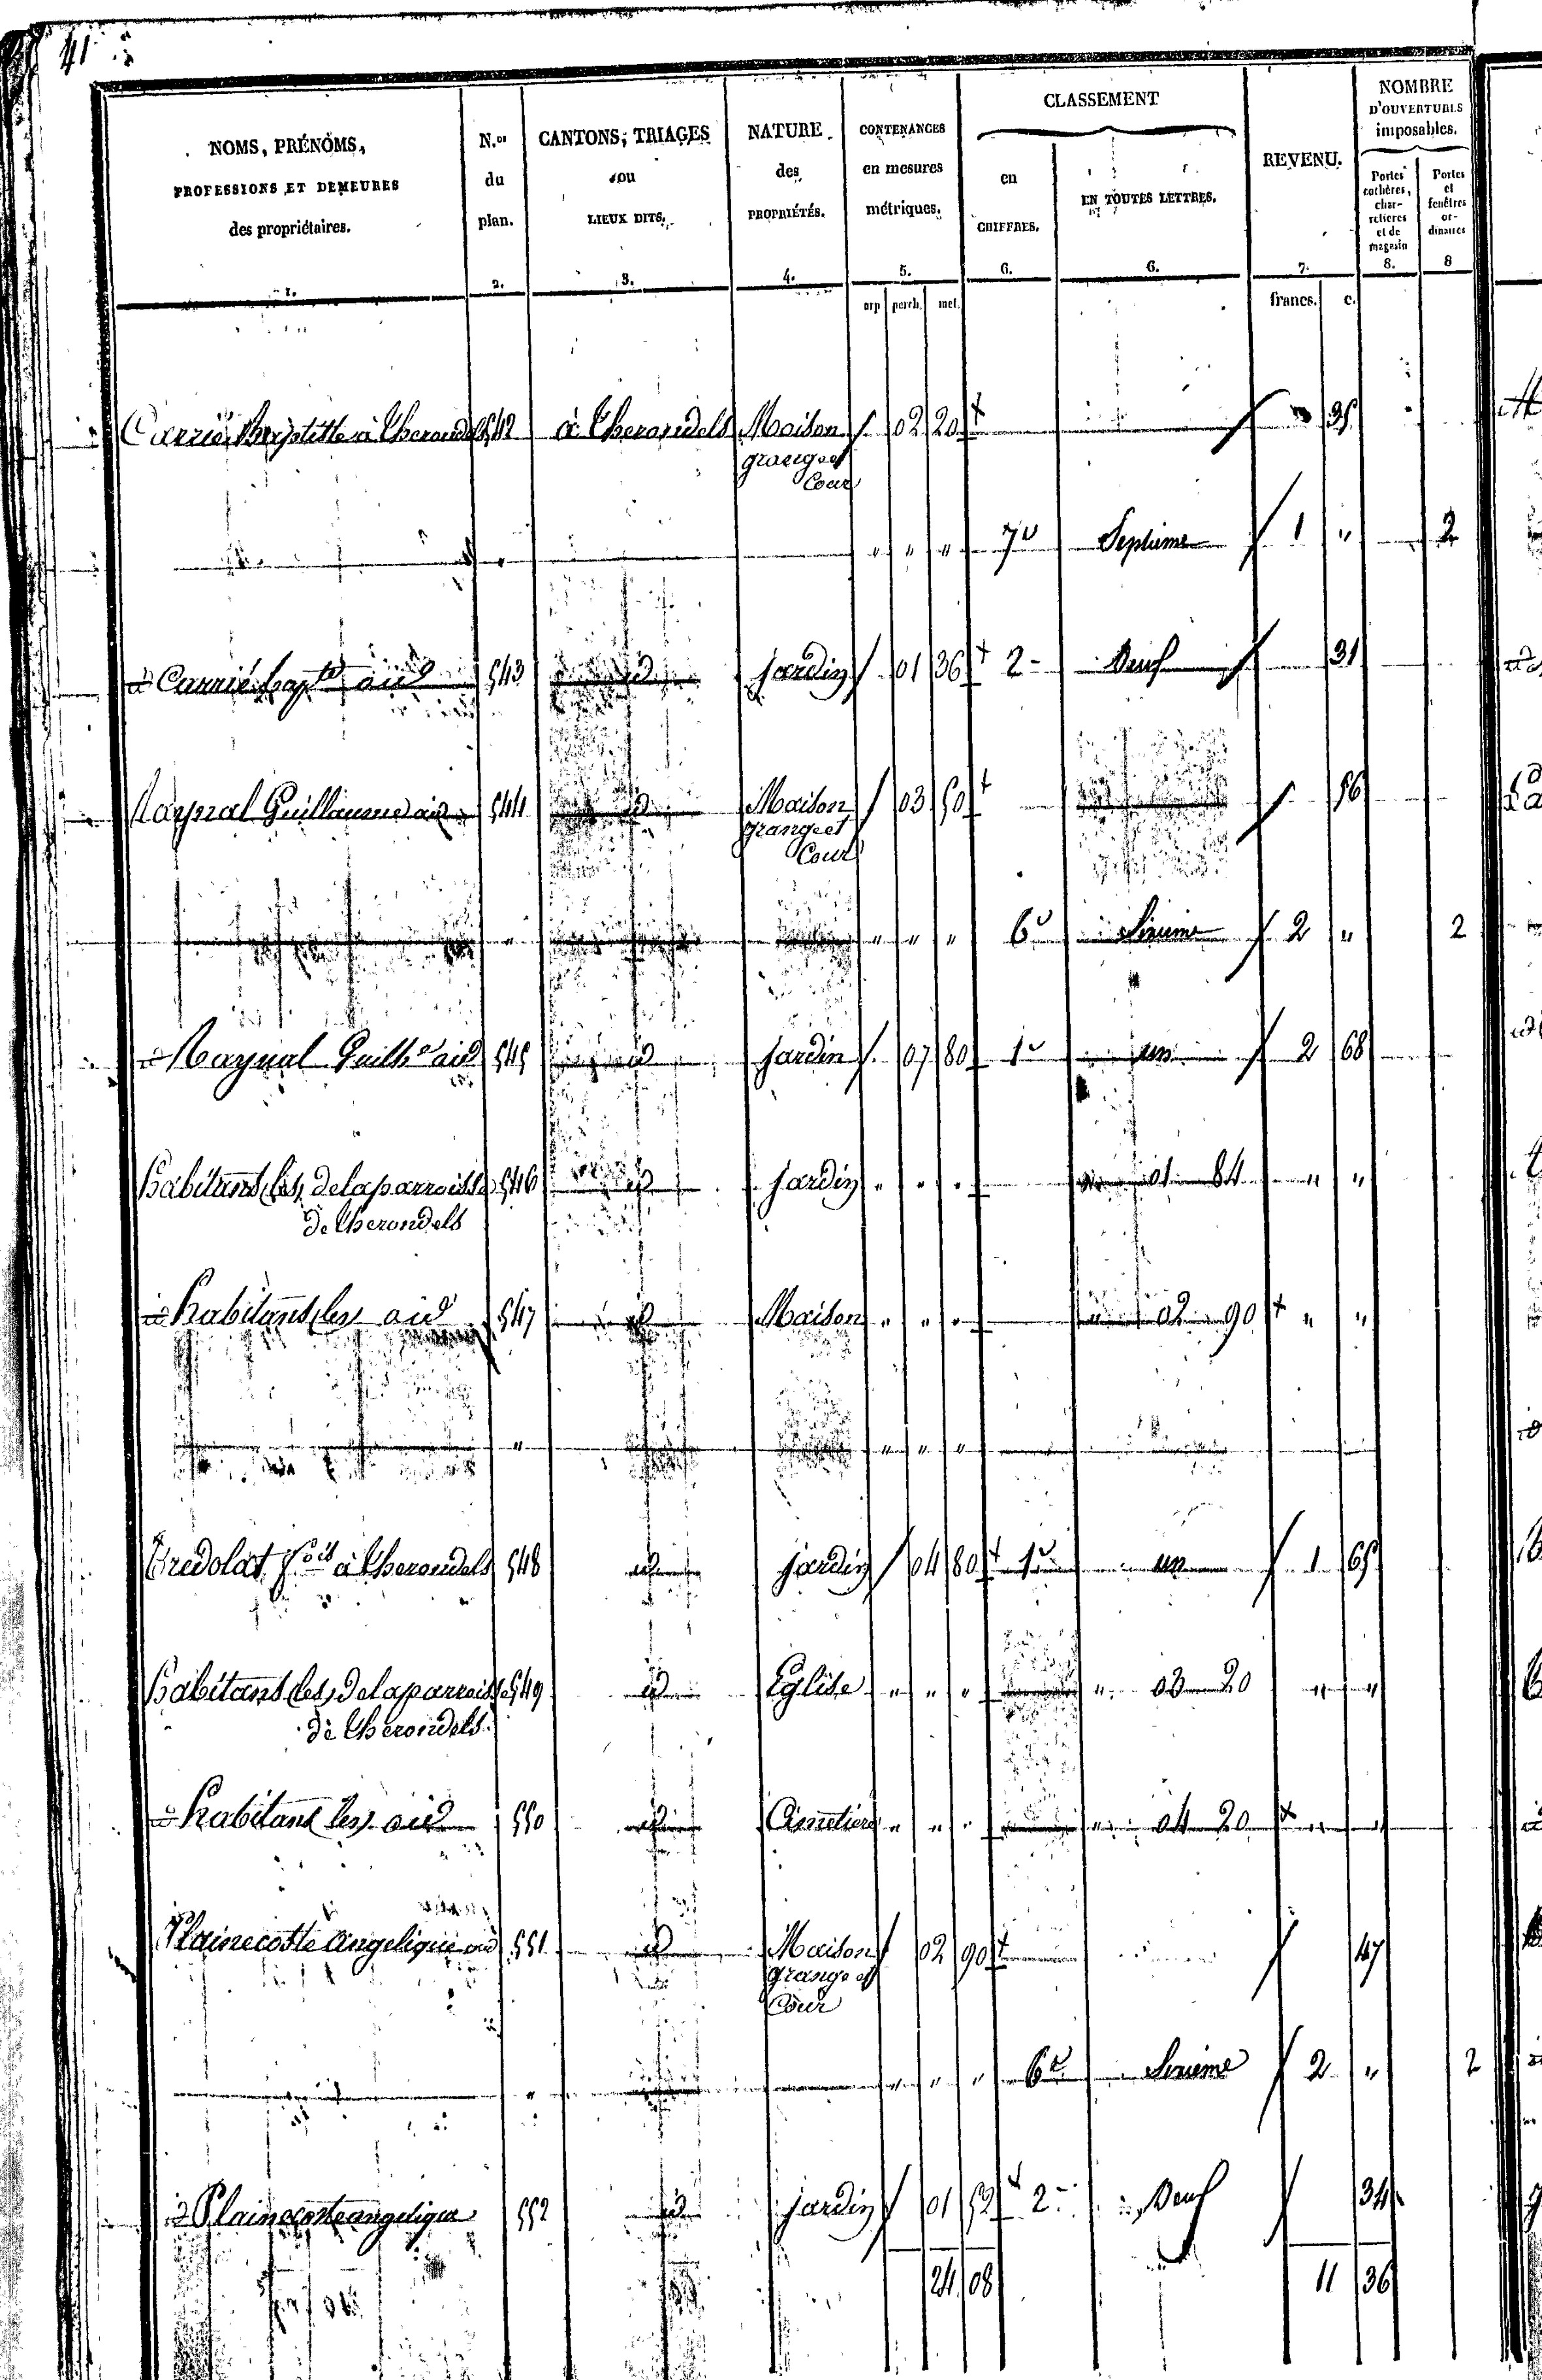 41
NOMS, PRÉNOMS, PROFESSIONS ET DEMEURES des propriétaires. 1.
N.os du plan. 2.
CANTONS, TRIAGES ou LIEUX DITS. 3.
NATURE des PROPRIÉTÉS. 4.
CONTENANCES en mesures métriques. 5.
CLASSEMENT
en CHIFFRES. 6.
EN TOUTES LETTRES. 6.
REVENU. 7.
NOMBRE D'OUVERTURES imposables.
Portes cochères, charretières et de magasin 8.
Portes et fenêtres ordinaires 8
arp perch. met. francs. c.
Carrié à Therondels 542 à Therondels Maison 02 20
grange et
Cour
" " " " 7e Septieme 1 " 2
id Carrié bapte aid 543 id jardin 01 36 2 Deux 31
Guillaume aid 544 id Maison 03 50 56
grange et
Cour
" " " " 6e Sixieme 2 " 2
id aid 545 id jardin 07 80 1e un 2 68
habitans (les) de la parroisse 546 id jardin " " " 01 84 " "
de Therondels
id habitans (les) aid 547 id Maison " " " " 02 90 " "
" " " "
fcois à Therondels 548 id jardin 04 80 1e un 1 65
habitans (les) de la parroisse 549 id Eglise " " " " 03 20 " "
de Therondels
id habitans (les) aid 550 id Cimetiere " " " " 04 20 " "
Plainecoste angelique aid 551 id Maison 02 90 47
grange et
Cour
" " " " 6e Sixieme 2 " 2
id Plainecoste angelique 552 id jardin 01 52 2 Deux 34
24 08 11 36